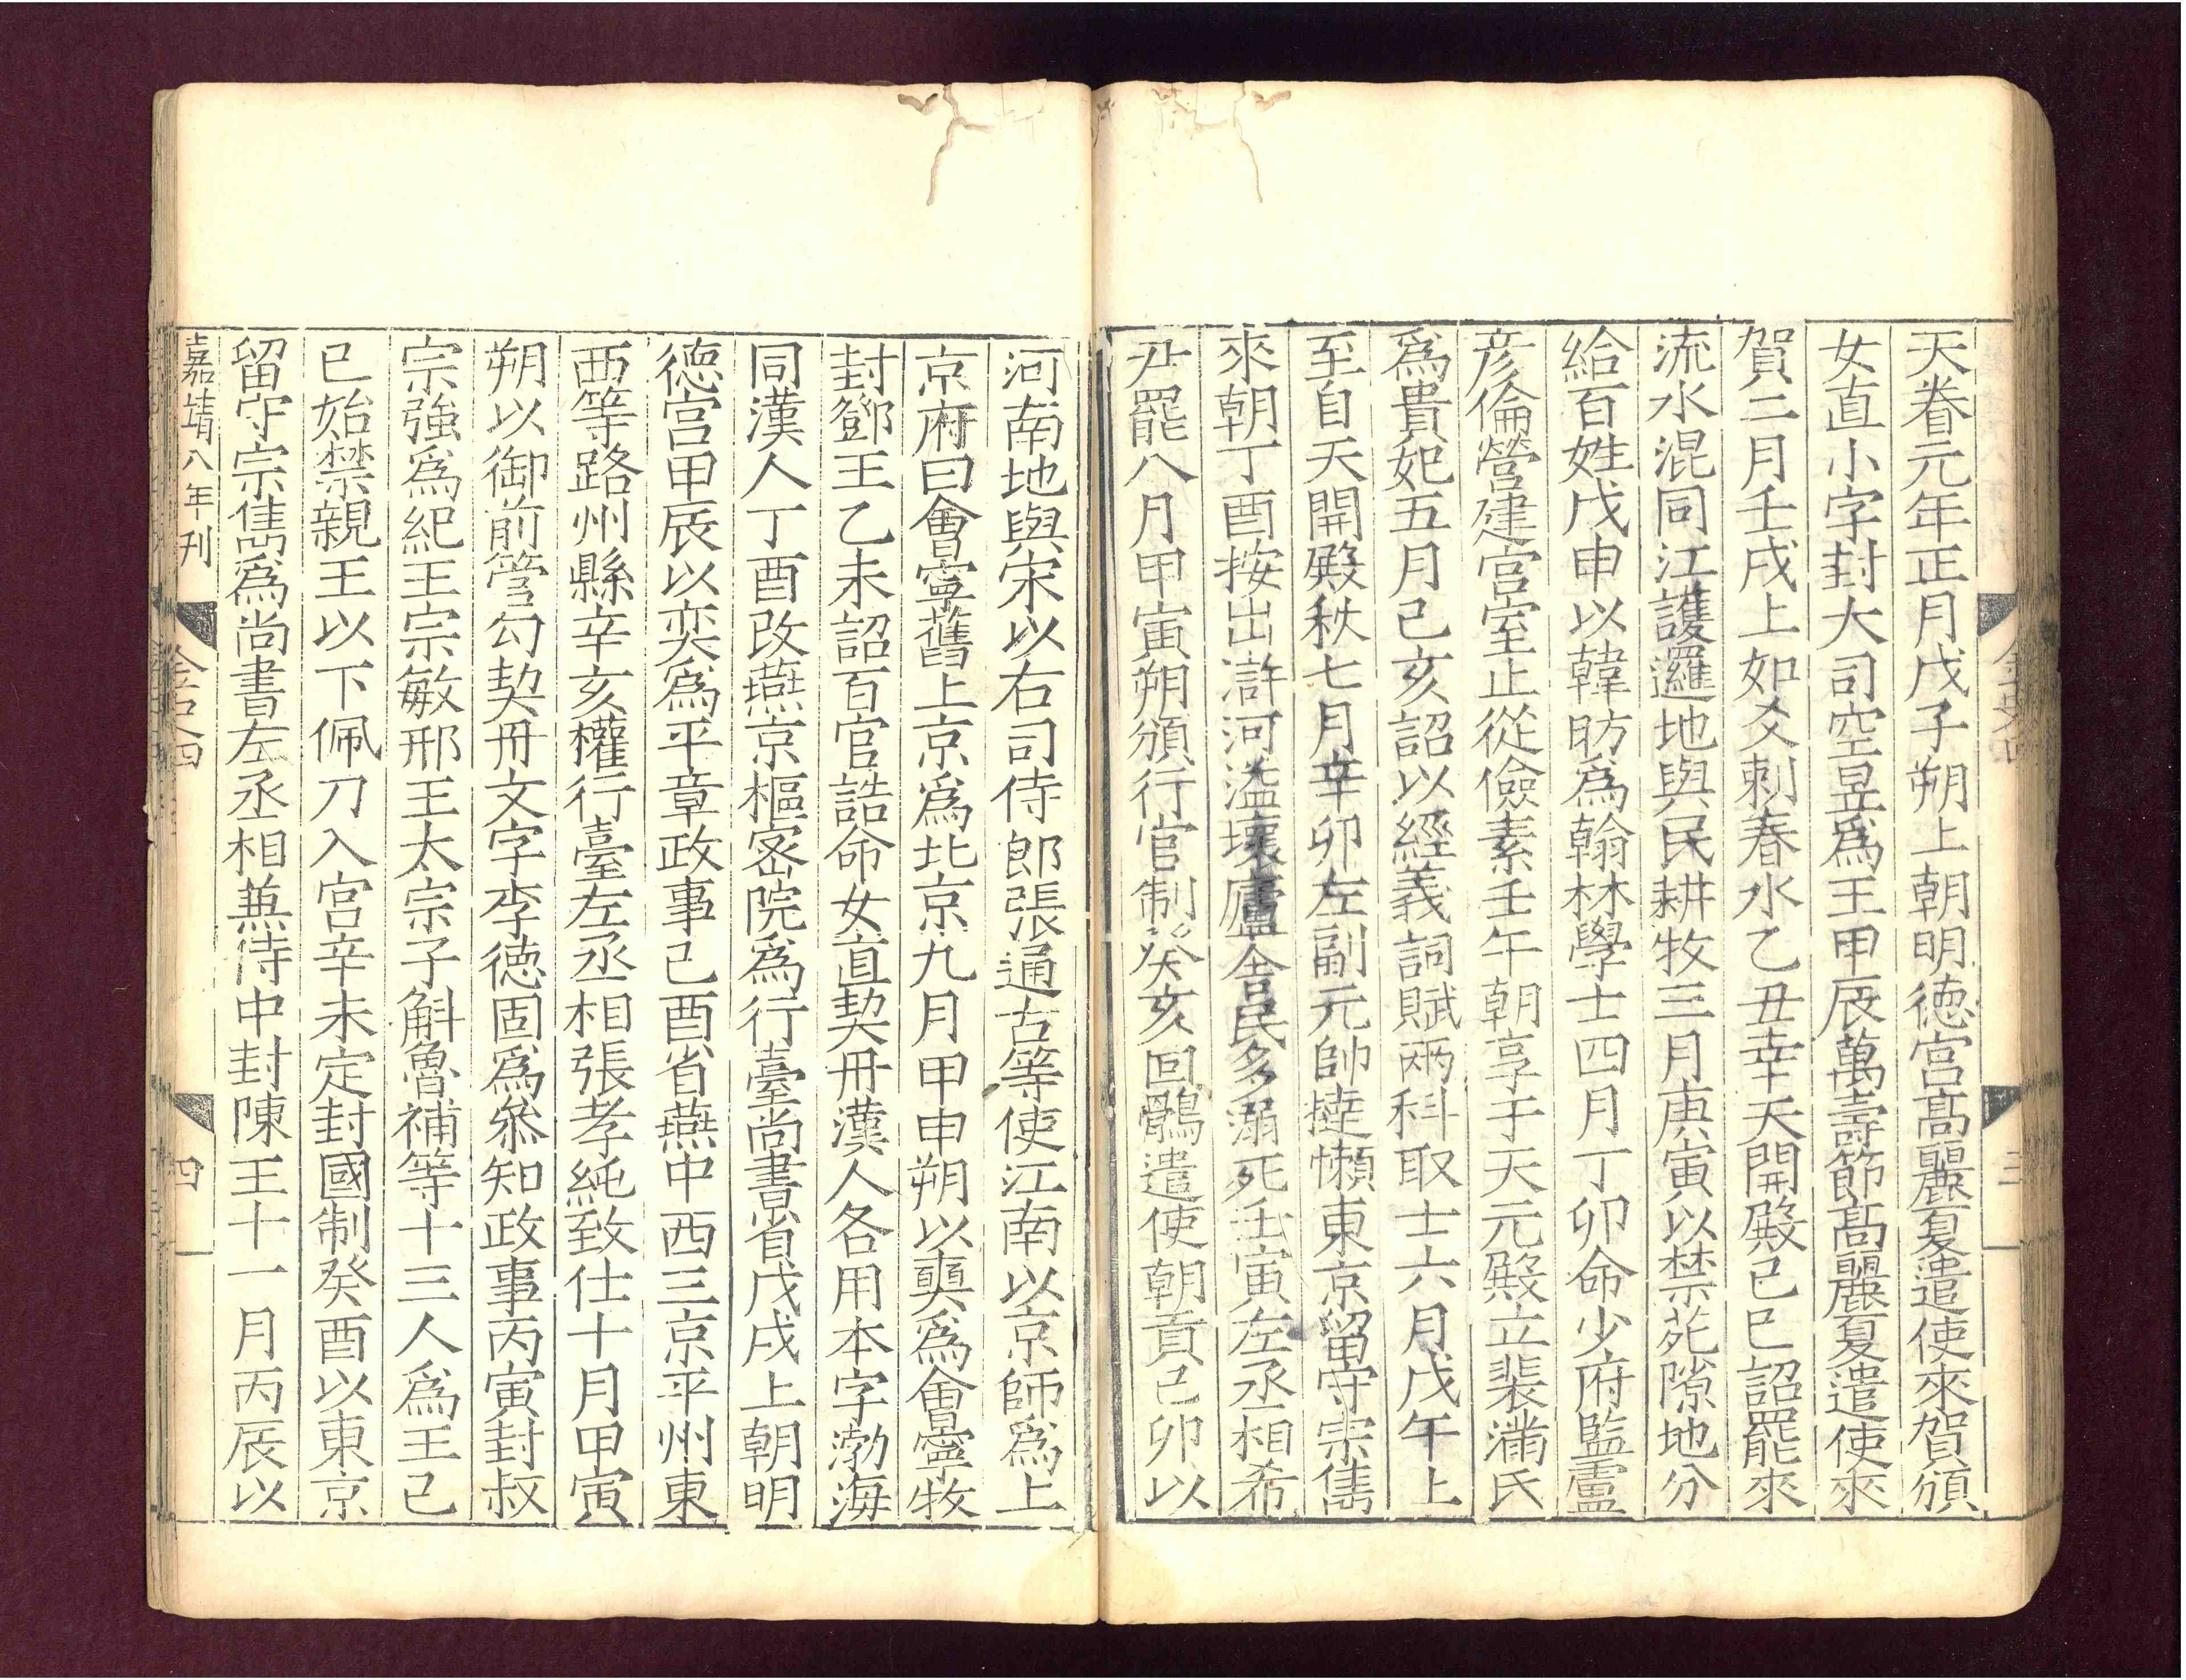 天眷元年正月戊子朔上朝明德宮高麗夏遣使來賀頒
女直小字封大司空昱爲王甲辰萬壽節高麗夏遣使來
賀二月壬戌上如爻剌春水乙丑幸天開殿己巳詔罷來
流水混同江護邏地與民耕牧三月庚寅以禁苑隙地分
給百姓戊申以韓昉爲翰林學士四月丁卯命少府監盧
彦倫營建宮室止從儉素壬午朝享于天元殿立裴滿氏
爲貴妃五月己亥詔以經義詞賦兩科取士六月戊午上
至自天開殿秋七月辛卯左副元帥撻懶東京留守宗雋
來朝丁酉按出滸河溢壞廬舍民多溺死壬寅左丞相希
尹罷八月甲寅朔頒行官制癸亥回鶻遣使朝貢己卯以
河南地與宋以右司侍郎張通古等使江南以京師爲上
京府曰會寧舊上京爲北京九月甲申朔以奭爲會寧牧
封鄧王乙未詔百官誥命女直契丹漢人各用本字渤海
同漢人丁酉改燕京樞密院爲行臺尚書省戊戌上朝明
德宮甲辰以奕爲平章政事己酉省燕中西三京平州東
西等路州縣辛亥權行臺左丞相張孝純致仕十月甲寅
朔以御前管勾契丹文字李德固爲叅知政事丙寅封叔
宗強爲紀王宗敏邢王太宗子斛魯補等十三人爲王己
巳始禁親王以下佩刀入宮辛未定封國制癸酉以東京
留守宗雋爲尚書左丞相兼侍中封陳王十一月丙辰以
嘉靖八年刊
金史四
四